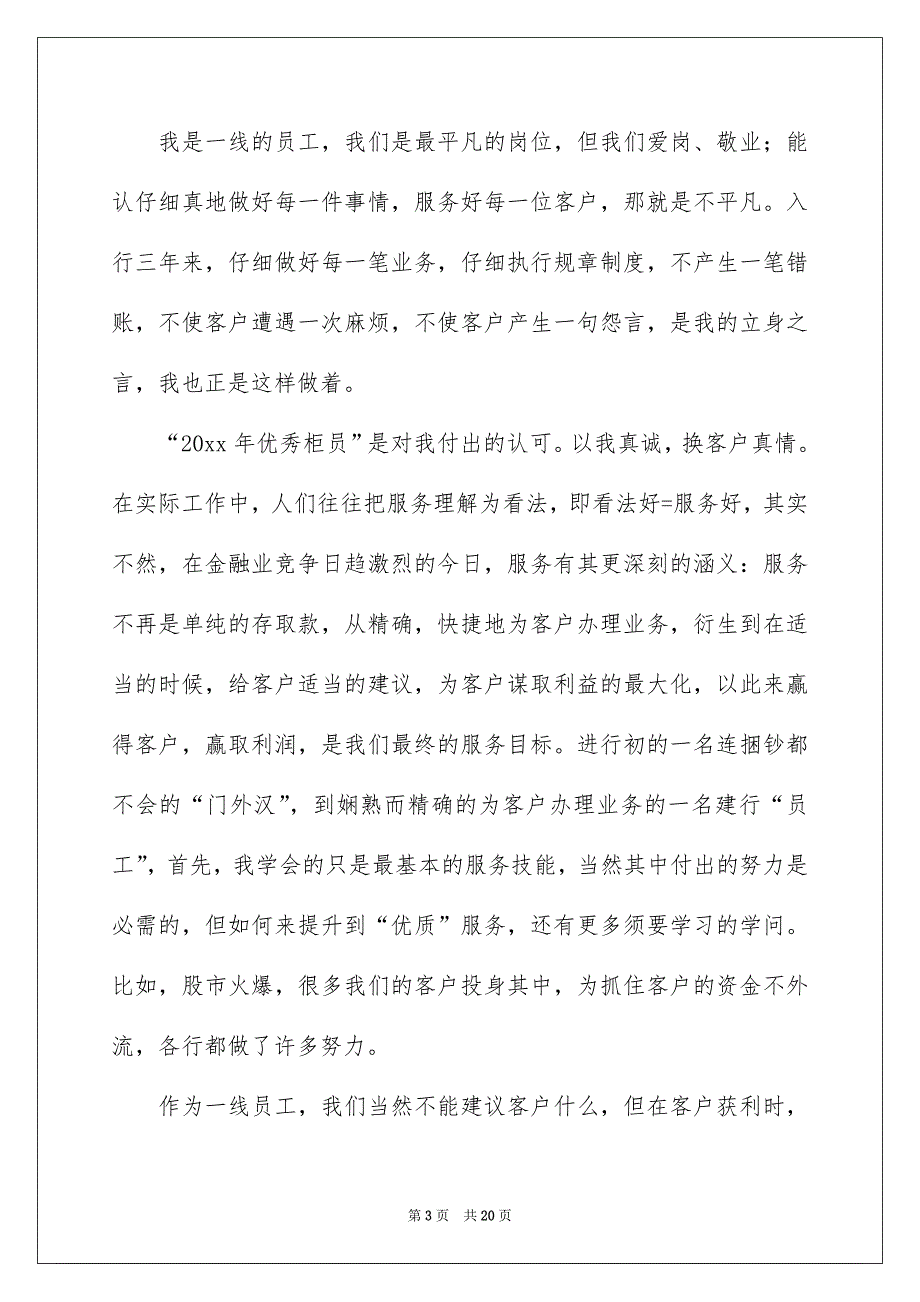 我是一线的员工，我们是最平凡的岗位，但我们爱岗、敬业；能
认仔细真地做好每一件事情，服务好每一位客户，那就是不平凡。入
行三年来，仔细做好每一笔业务，仔细执行规章制度，不产生一笔错
账，不使客户遭遇一次麻烦，不使客户产生一句怨言，是我的立身之
言，我也正是这样做着。
“20xx 年优秀柜员”是对我付出的认可。以我真诚，换客户真情。
在实际工作中，人们往往把服务理解为看法，即看法好=服务好，其实
不然，在金融业竞争日趋激烈的今日，服务有其更深刻的涵义：服务
不再是单纯的存取款，从精确，快捷地为客户办理业务，衍生到在适
当的时候，给客户适当的建议，为客户谋取利益的最大化，以此来赢
得客户，赢取利润，是我们最终的服务目标。进行初的一名连捆钞都
不会的“门外汉”，到娴熟而精确的为客户办理业务的一名建行“员
工”，首先，我学会的只是最基本的服务技能，当然其中付出的努力是
必需的，但如何来提升到“优质”服务，还有更多须要学习的学问。
比如，股市火爆，很多我们的客户投身其中，为抓住客户的资金不外
流，各行都做了许多努力。
作为一线员工，我们当然不能建议客户什么，但在客户获利时，
第 3 页 共 20 页